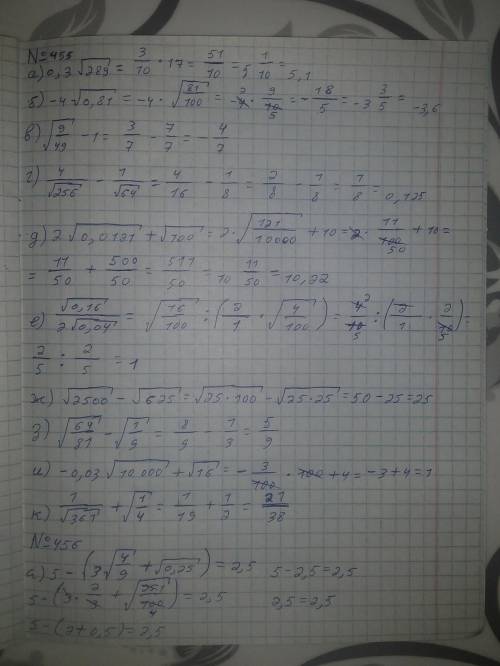 №455
а) 0,3√289 = 3/10 · 17 = 51/10 = 5 1/10 = 5,1
б) -4√0,81 = -4 · √81/100 = -4 · 9/10 = -18/5 = -3 3/5 = -3,6
в) √9/49 - 1 = 3/7 - 7/7 = -4/7
г) 4/√256 - 1/√64 = 4/16 - 1/8 = 2/8 - 1/8 = 1/8 = 0,125
д) 2√0,0121 + √100 = 2 · √121/10000 + 10 = 2 · 11/100 + 10 =
= 11/50 + 500/50 = 511/50 = 10 11/50 = 10,22
е) √0,16/2√0,04 = √16/100 : (2/1 · √4/100) = 4/10 : (2/1 · 2/10) =
2/5 : 2/5 = 1
ж) √2500 - √625 = √25·100 - √25·25 = 50 - 25 = 25
з) √64/81 - √1/9 = 8/9 - 1/3 = 5/9
и) -0,03·√10.000 + √16 = -3/100 · 100 + 4 = -3+4=1
к) 1/√361 + √1/4 = 1/19 + 1/2 = 21/38
№456
а) 5 - (3√4/9 + √0,25) = 2,5 5 - 2,5 = 2,5
5 - (3 · 2/3 + √25/100) = 2,5 2,5 = 2,5
5 - (2 + 0,5) = 2,5